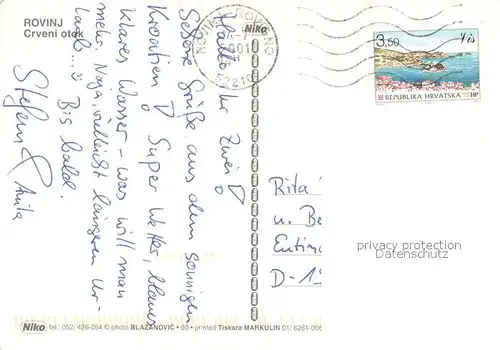 ROVINJ
Crveni otok
Niko
ROVINJ-ROVIGNO
52210
3,50
Vis
REPUBLIKA HRVATSKA
HP
Hallo Ihr Zwei!
Schöne Grüße aus dem sonnigen
Kroatien! Super Wetter, blaues
klares Wasser - was will man
mehr. Naja, vielleicht längeren Ur-
laub...
Bis bald!
Stefan & Anita
Rita
u. Be
Eutin
D-1
privacy protection
Datenschutz
Niko tel.: 052/ 426-054 © photo BLAZANOVIĆ • 00 • printed Tiskara MARKULIN 01/ 6261-006